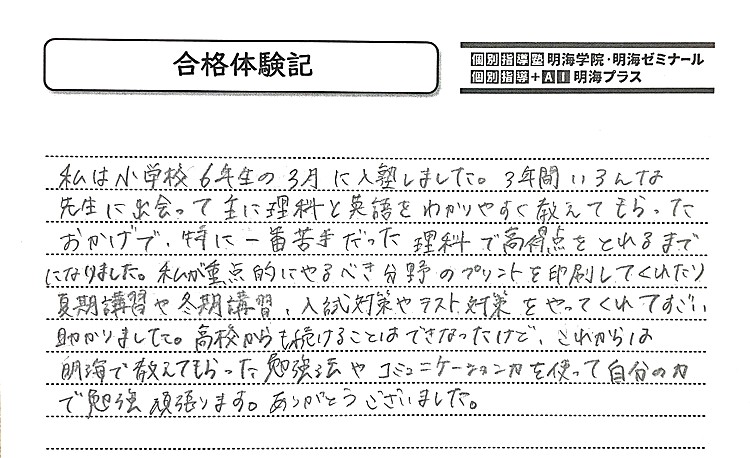 合格体験記
個別指導塾 明海学院・明海ゼミナール
個別指導+AI 明海プラス
私は小学校6年生の3月に入塾しました。3年間いろんな
先生に出会って主に理科と英語をわかりやすく教えてもらった
おかげで、特に一番苦手だった理科で高得点をとれるまで
になりました。私が重点的にやるべき分野のプリントを印刷してくれたり
夏期講習や冬期講習、入試対策やテスト対策をやってくれてすごい
助かりました。高校からも続けることはできなかったけど、これからは
明海で教えてもらった勉強法やコミュニケーション力を使って自分の力
で勉強頑張ります。ありがとうございました。